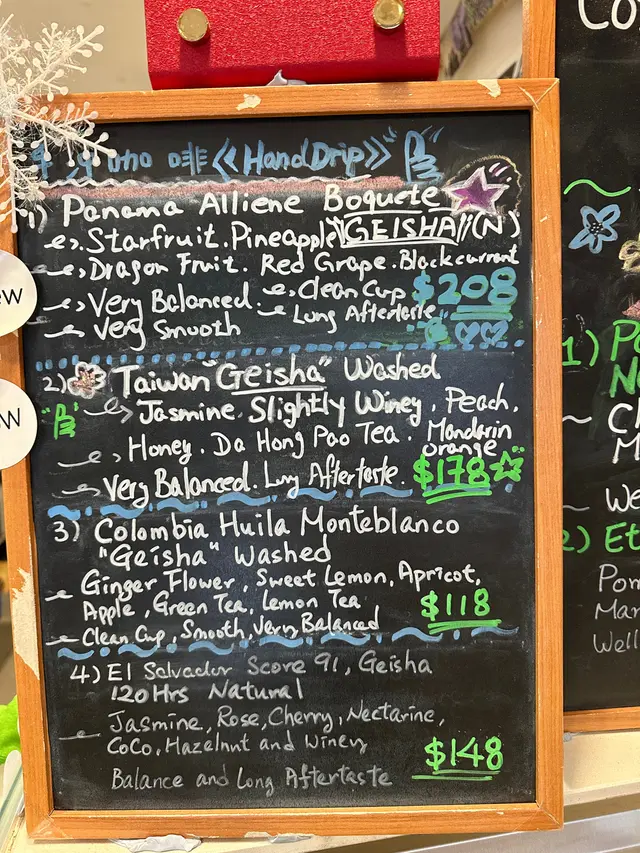 《HandDrip》
1) Panama Alliene Boquete
Starfruit. Pineapple "GEISHA" (N)
Dragon Fruit. Red Grape. Blackcurrant
Very Balanced. Clean Cup $208
Very Smooth Long Aftertaste
2) Taiwan "Geisha" Washed
Jasmine. Slightly Winey, Peach,
Honey. Da Hong Pao Tea. Mandarin
orange
Very Balanced. Long Aftertaste. $178
3) Colombia Huila Monteblanco
"Geisha" Washed
Ginger Flower, Sweet Lemon, Apricot,
Apple, Green Tea, Lemon Tea
Clean Cup, Smooth, Very Balanced $118
4) El Salvador Score 91, Geisha
120Hrs Natural
Jasmine, Rose, Cherry, Nectarine,
CoCo, Hazelnut and Winery
Balance and Long Aftertaste $148
Co
1)
2) Et